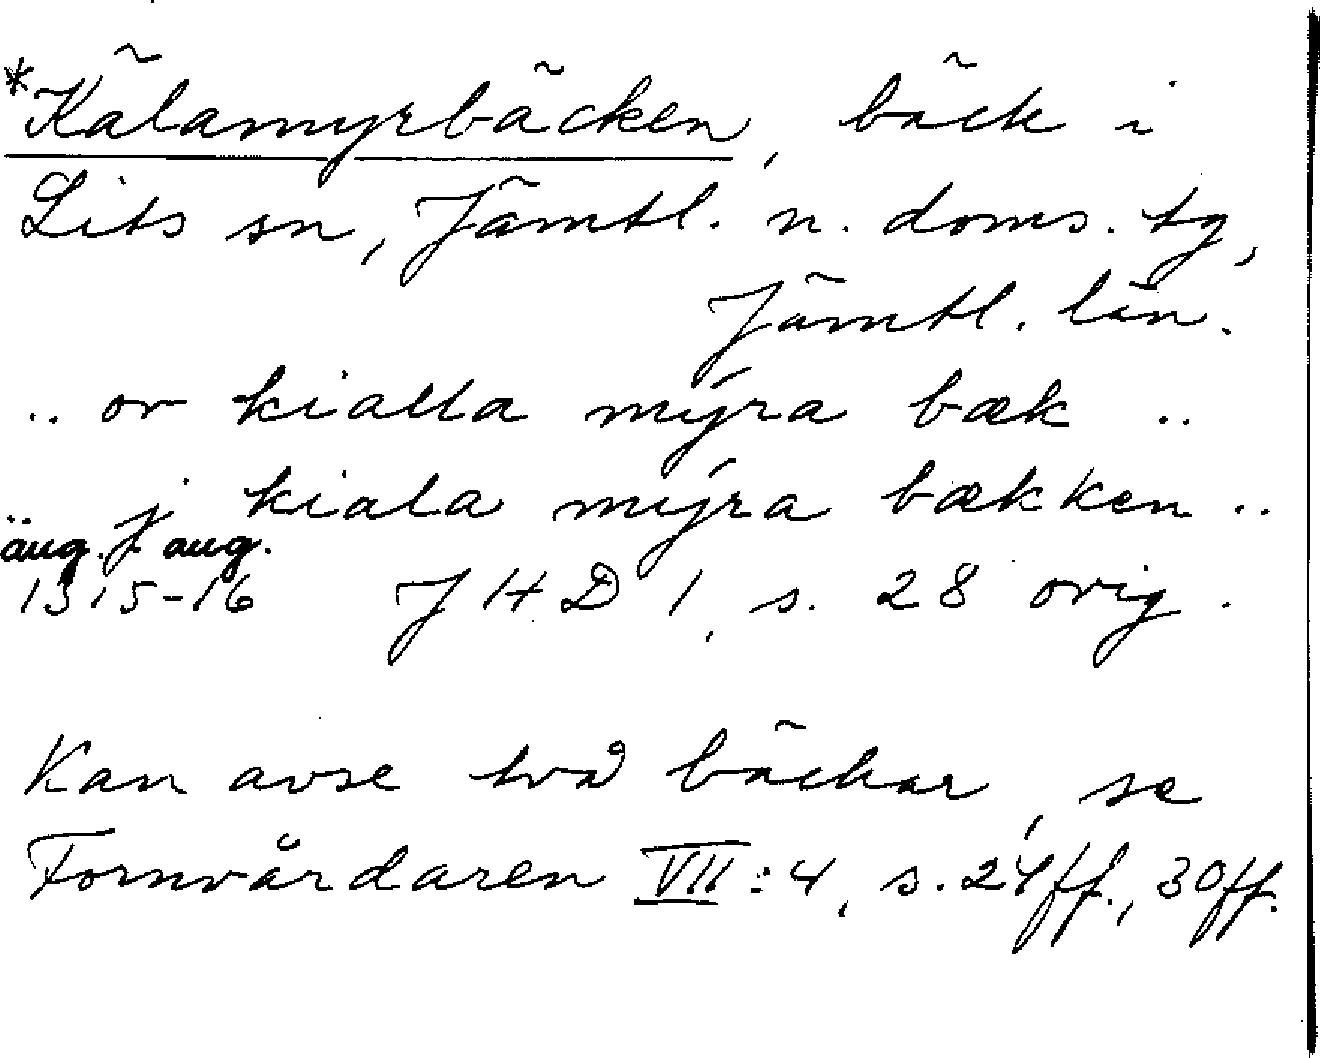 *Kälamyrbäcken, bäck i
Lits sn, Jämtl. n. doms. tg,
Jämtl. län.
.. or kialla mýra bæk ..
.. j kiala mýra bækken ..
aug. aug.
1315-16 JHD 1, s. 28 orig.
Kan avse två bäckar, se
Fornvårdaren VII:4, s. 24ff., 30ff.